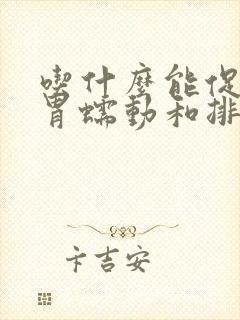 喫什麼能促
胃蠕動和排
卡吉安